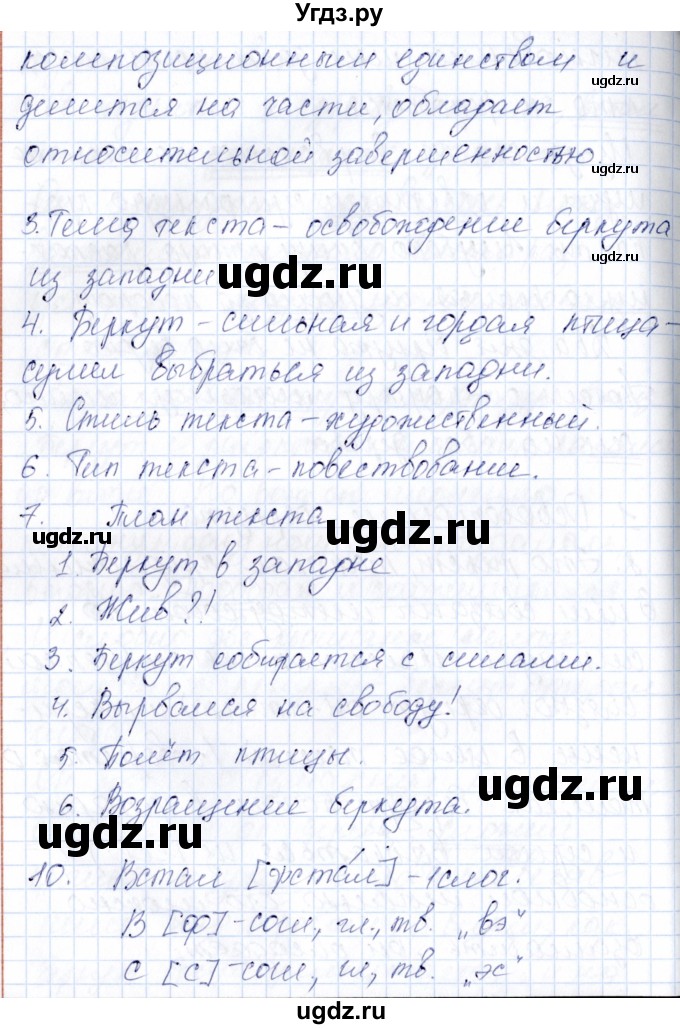 Угдз.ру
композиционным единством и
ugdz.ru
делится на части, обладает
относительной завершенностью.
ugdz.ru
3. Тема текста - освобождение беркута
ugdz.ru
из западни
ugdz.ru
4. Беркут - сильная и гордая птица -
сумел выбраться из западни.
5. Стиль текста - художественный.
6. Тип текста - повествование.
7. План текста
ugdz.ru
ugdz.ru
1. Беркут в западне
2. Жив?!
3. Беркут собирается с силами.
4. Вырвался на свободу!
5. Полёт птицы.
6. Возращение беркута.
ugdz.ru
ugdz.ru
10. Встал [фста́л] - 1 слог.
В [ф] - согл., гл., тв. „вэ"
с [с] - согл., гл., тв. „эс"
ugdz.ru
ugdz.ru
ugdz.ru